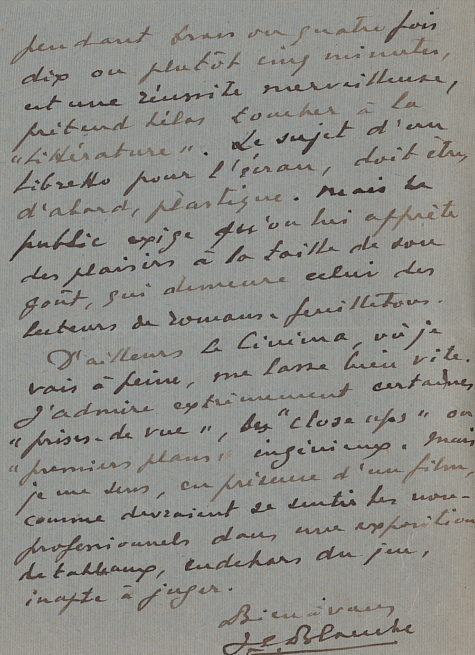 pendant trois ou quatre fois
dix ou plutôt cinq minutes,
est une réussite merveilleuse,
prétend hélas toucher à la
"Littérature". Le sujet d'un
libretto pour l'écran, doit être,
d'abord, plastique. Mais le
public exige qu'on lui apprête
des plaisirs à la taille de son
goût, qui demeure celui des
lecteurs de romans-feuilletons.
D'ailleurs le Cinéma, où je
vais à peine, me lasse bien vite.
J'admire extrêmement certaines
"prises-de vue", les "close ups" ou
"premiers plans" ingénieux. Mais
je me sens, en présence d'un film,
comme devraient se sentir les non-
professionnels dans une exposition
de tableaux, endehors du jeu,
inapte à juger.
Bien à vous
J. E. Blanche